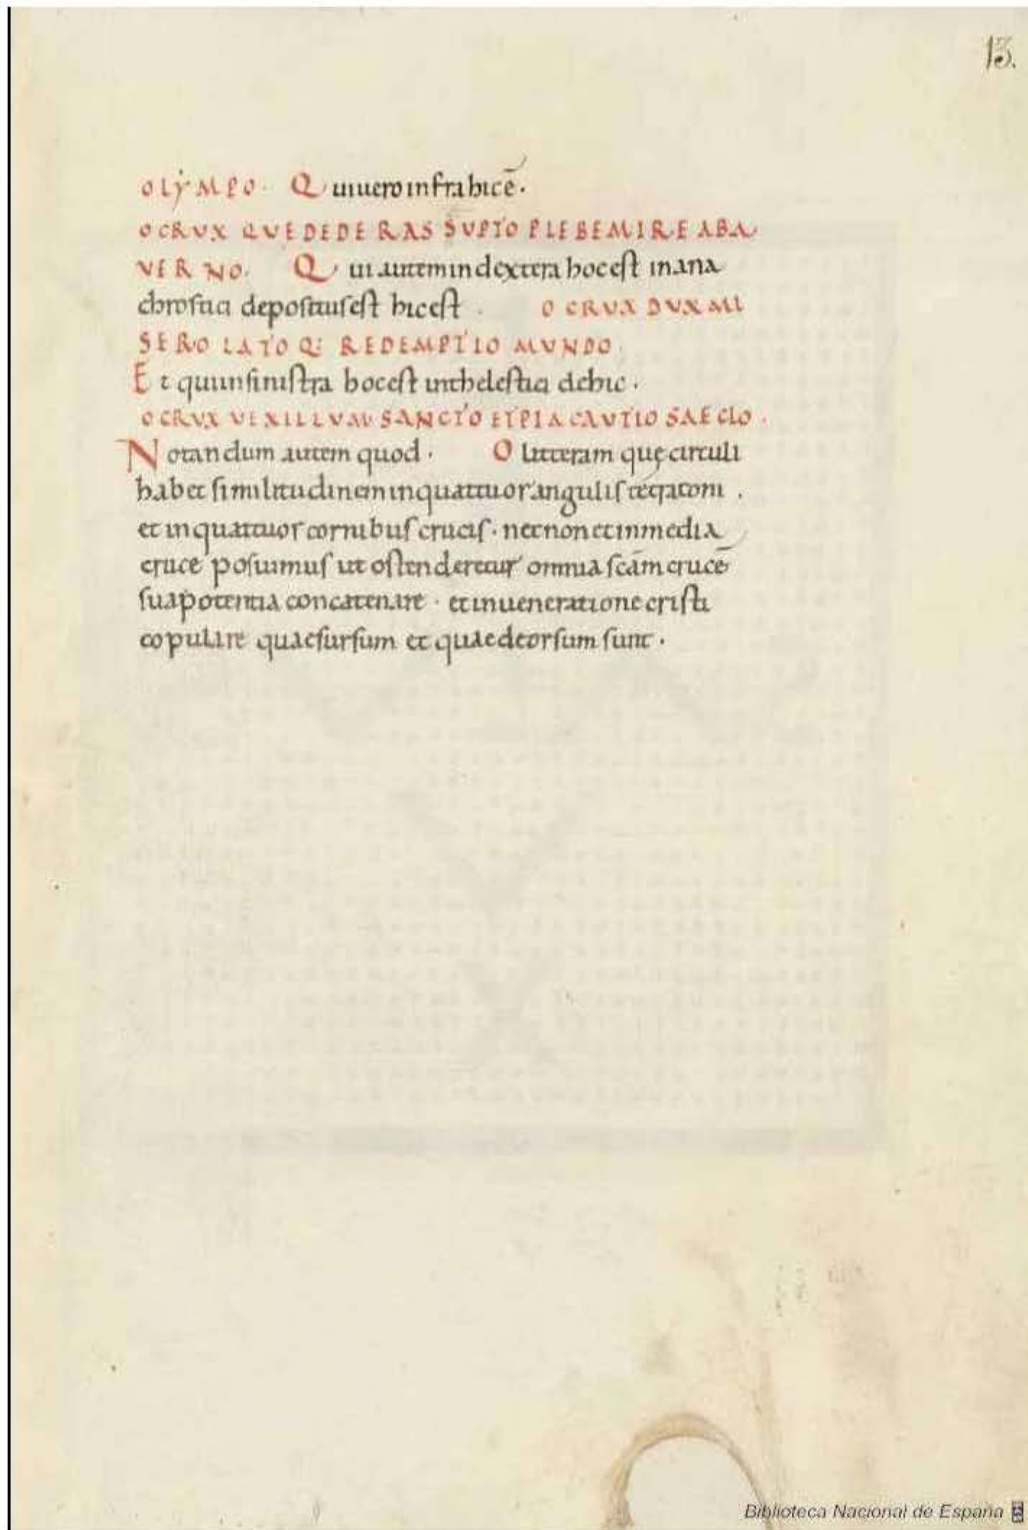 13.
OLYMPO. Qui uero infra hic ē.
O CRVX QVE DEDERAS SVPTO PLEBEM IRE ABA
VERNO. Qui autem in dextera hoc est in ana
chrostici depositus est hic est. O CRVX DVX MI
SERO LATO Q: REDEMPTIO MVNDO
Et qui in sinistra hoc est in thelestici dehic.
O CRVX VEXILLVM SANCTO ET PIA CAVTIO SAECLO.
Notandum autem quod. O litteram quę circuli
habet similitudinem in quattuor angulis tetragoni.
et in quattuor cornibus crucis. nec non et in media
cruce posuimus ut ostenderetur omnia scām crucē
sua potentia concatenare. et in ueneratione cristi
copulare quae sursum et quae deorsum sunt.
Biblioteca Nacional de España